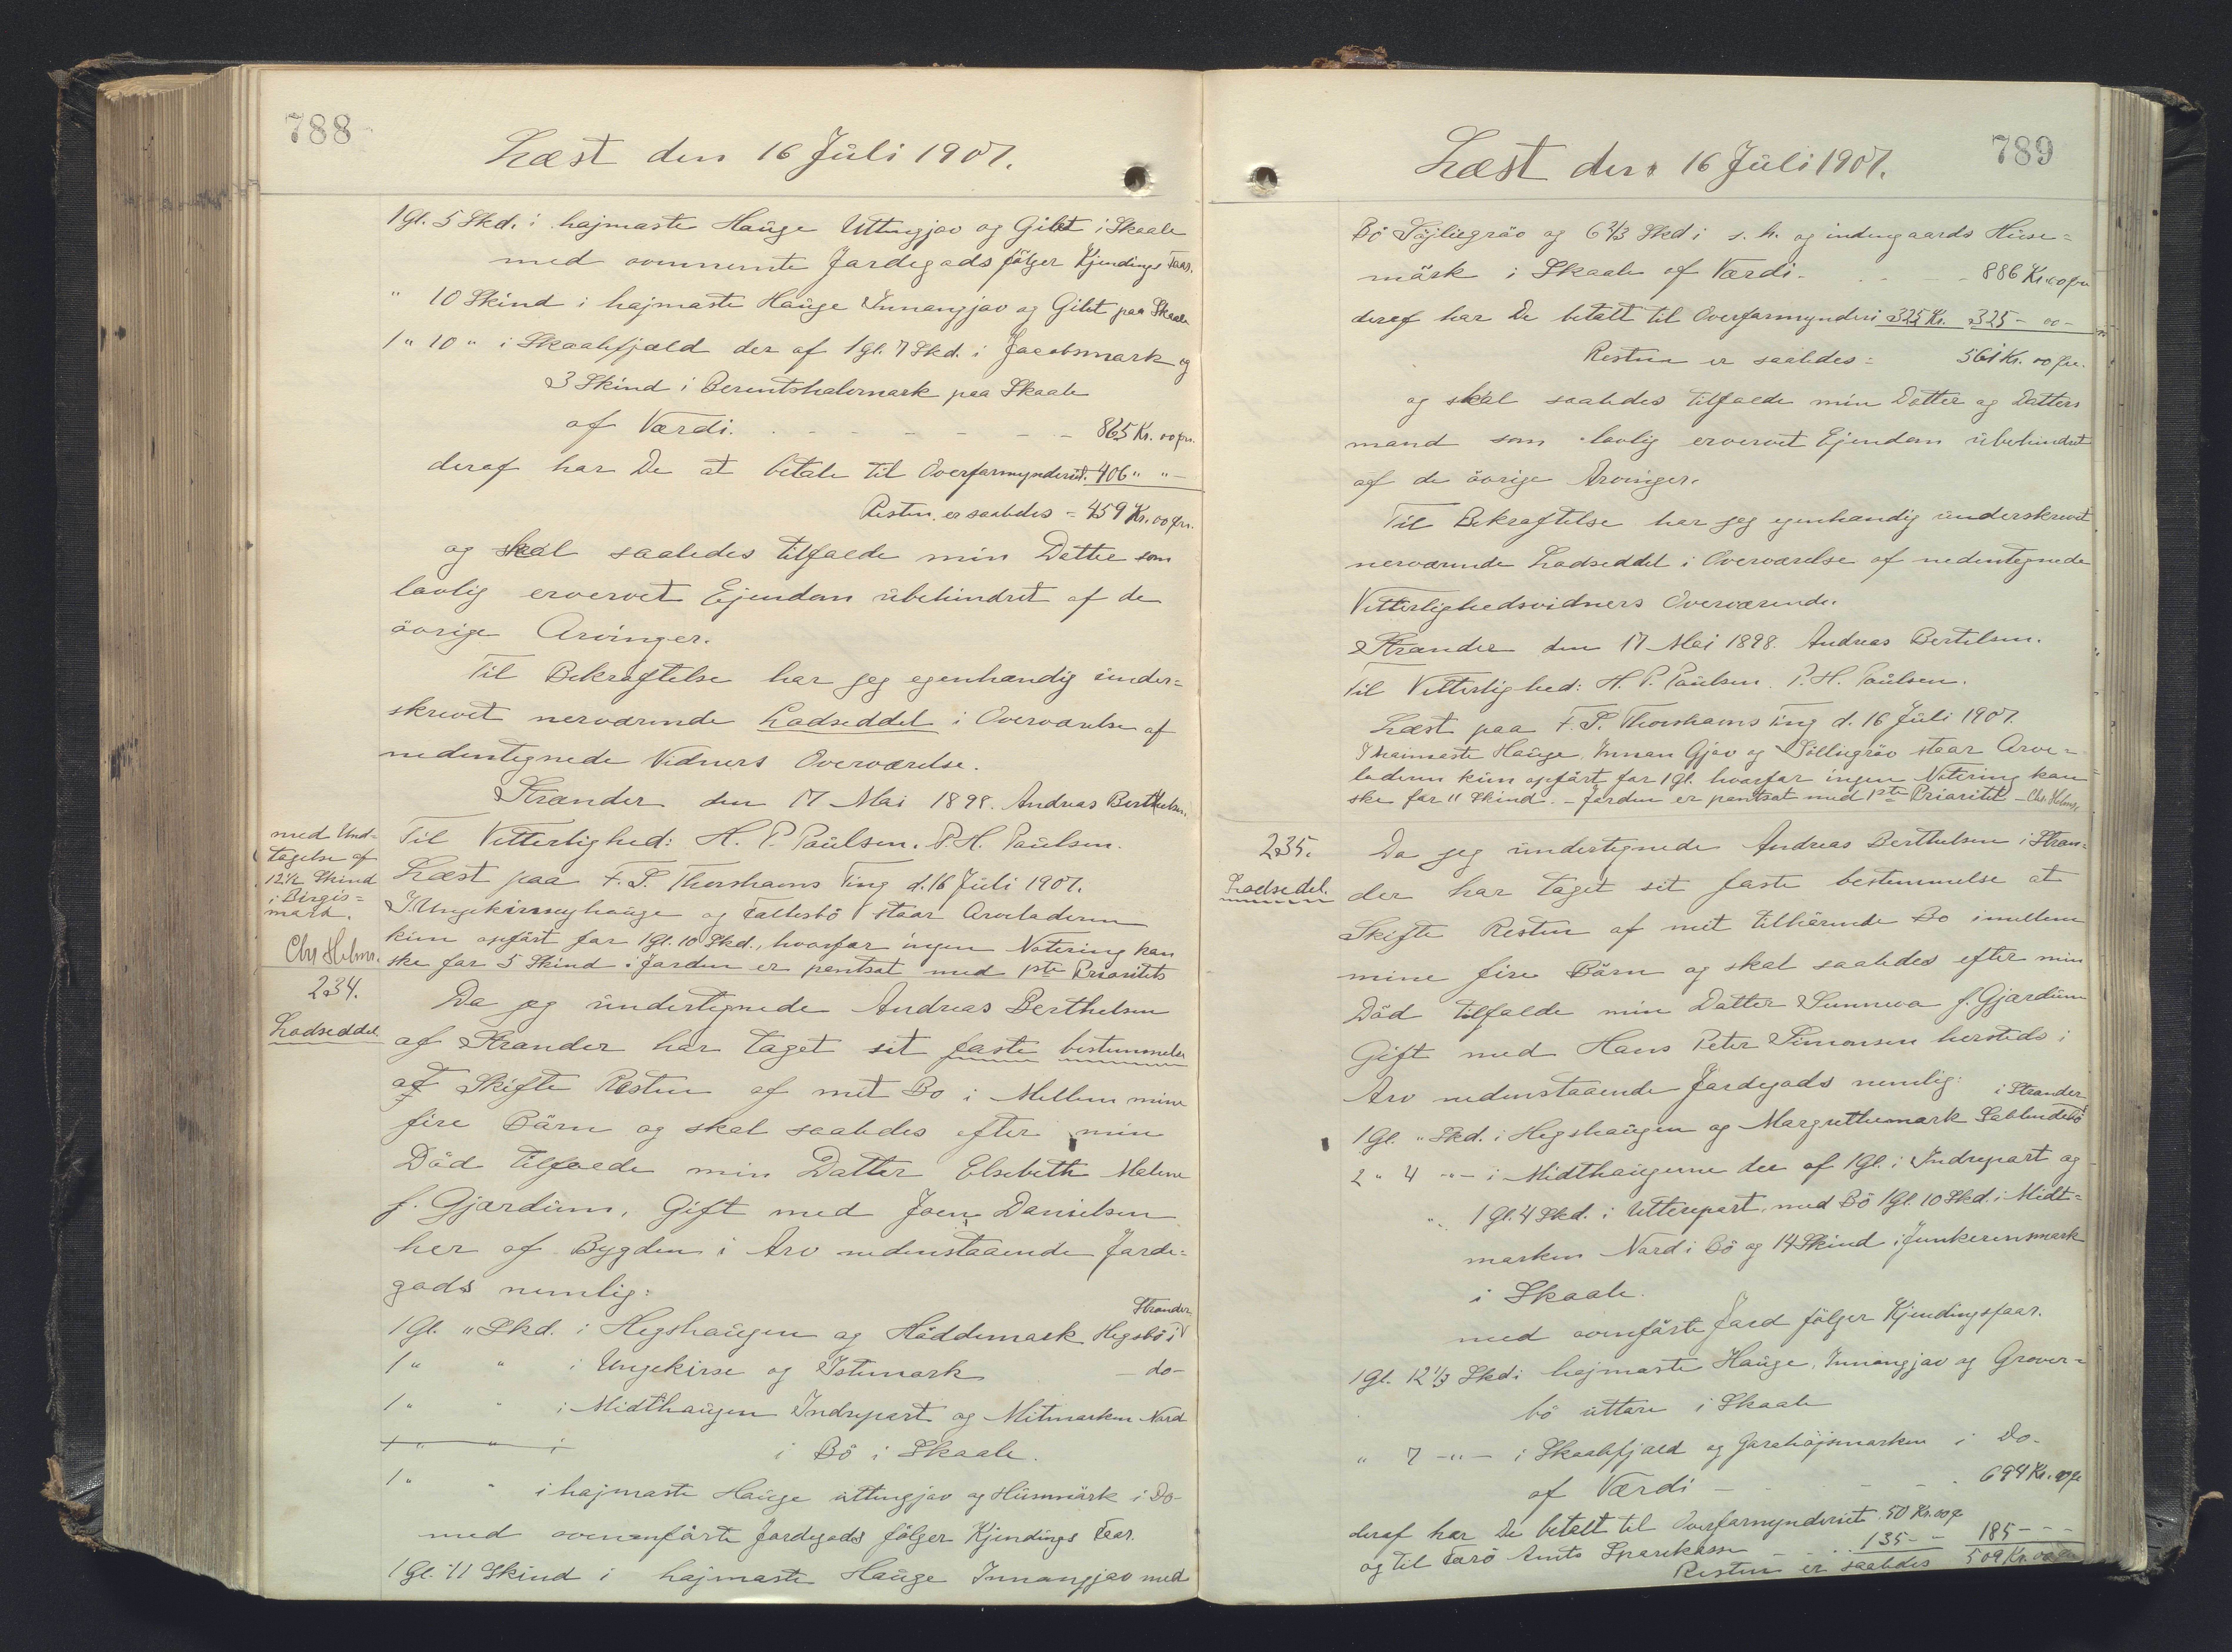 788
Læst den 16 Jüli 1907.
1 Gl. 5 Skd. i hajmaste Haüge Uttangjov og Gilet i Skaale
med ovennemte Jardegads fölger Kjendings Faar.
" 10 Skind i hajmaste Haüge Innangjov og Gilet paa Skaale
1 " 10 " i Skaalefjæld der af 1 Gl. 7 Skd. i Jacobsmark og
3 Skind i Berentshalvmark paa Skaale
af Værdi. - - - - - - 865 Kr. 00 ør.
deraf har De at betale til Overformynderiet. 406 " " -
Resten er saaledes = 459 Kr. 00 ør.
og skal saaledes tilfalde min Datter som
lovlig ervervet Ejendom übehindret af de
övrige Arvinger.
Til Bekræftelse har jeg egenhændig ünder=
skrevet nerværende Lodseddel i Overværelse af
nedentegnede Vidners Overværelse.
Strænder den 17 Mai 1898. Andreas Berthelsen.
Til Vitterlighed: H. P. Poülsen. P. H. Poülsen.
med Und=
tagelse af
12 1/2 Skind
i Birgis=
mark.
Chr Helms.
Læst paa F. S. Thorshavns Ting d. 16 Jüli 1907.
I Ungekirseyhaüge og Fallesbö staar Arveladeren
kün opfört for 1 Gl. 10 Skd., hvorfor ingen Notering kan
ske for 5 Skind i Jorden er pantsat med 1ste Prioritets
234.
Lodseddel
Da jeg ündertegnede Andreas Berthelsen
af Strænder har taget sit faste bestemmelse
at Skifte Resten af mit Bo i Mellem mine
fire Bärn og skal saaledes efter min
Död tilfalde min Datter Elsebeth Malene
f. Gjærdüm, Gift med Joen Danielsen
her af Bygden i Arv nedenstaaende Jarde=
gods nemlig:
1 Gl. " Skd. i Hegshaügen og Höddemark Hegsbö i Strænder
1 " " i Ungekirse og Istemark - do -
1 " " i Midthaügen Indrepart og Mitmarken Nord
1 " " i i Bö i Skaale.
1 " " i hajmaste Haüge üttangjov og Hüsmärk i Do -
med ovenanförte Jordegods fölger Kjendings Faar.
1 Gl. 11 Skind i hajmaste Haüge Innangjov med
789
Læst den 16 Jüli 1907.
Bö Söjliegröv og 6 2/3 Skd i s. h. og indengaards Hüse=
märk i Skaale af Værdi - - - 886 Kr. 00 ør
deraf har De betalt til Overformynderi 325 Kr. 325 - 00 -
Resten er saaledes = 561 Kr. 00 ør.
og skal saaledes tilfalde min Datter og Datters
mand som lovlig ervervet Ejendom übehindret
af de övrige Arvinger.
Til Bekræftelse har jeg egenhændig ünderskrevet
nerværende Lodseddel i Overværelse af nedentegnede
Vitterlighedsvidners Overværende.
Strænder den 17 Mai 1898. Andreas Bertelsen.
Til Vitterlighed: H. P. Poülsen. P. H. Poülsen.
Læst paa F. S. Thorshavns Ting d. 16 Jüli 1907.
I haimaste Haüge, Innan Gjov og Söllegröv staar Arve=
laderen kün opfört for 1 Gl. hvorfor ingen Notering kan
ske for 11 Skind. - Jorden er pantsat med 1ste Prioritet - Chr. Helms.
235.
Lodsedel.
Da jeg ündertegnede Andreas Berthelsen i Stræn=
der har taget sit faste bestemmelse at
Skifte Resten af mit tilhörende Bo imellem
mine fire Bärn og skal saaledes efter min
Död tilfalde min Datter Sunneva f. Gjærdüm
Gift med Hans Peter Simonsen hersteds i
Arv nedenstaaende Jordegods nemlig:
1 Gl. " Skd. i Hegshaügen og Margrethemark Lallendebö i Strænder
2 " 4 -"- i Midthaügerne der af 1 Gl. i Indrepart og
". 1 Gl. 4 Skd. i Utterpart, med Bö 1 Gl. 10 Skd. i Midt=
marken Nord i Bö og 14 Skind i Junkerensmark
i Skaale.
med ovenförte Jord fölger Kjendingsfaar.
1 Gl. 12 1/3 Skd i hajmaste Haüge, Innangjov og Grover=
bö üttare i Skaale
" 7 -"- i Skaalefjæld og Garehöjsmarken i Do -
af Værdi - - - - 694 Kr. 00 ør
deraf har De betalt til Overformynderiet 50 Kr. 00 ø
og til Færö Amts Sparekasse - - 135 - - 185 - - -
Resten er saaledes 509 Kr. 00 ør